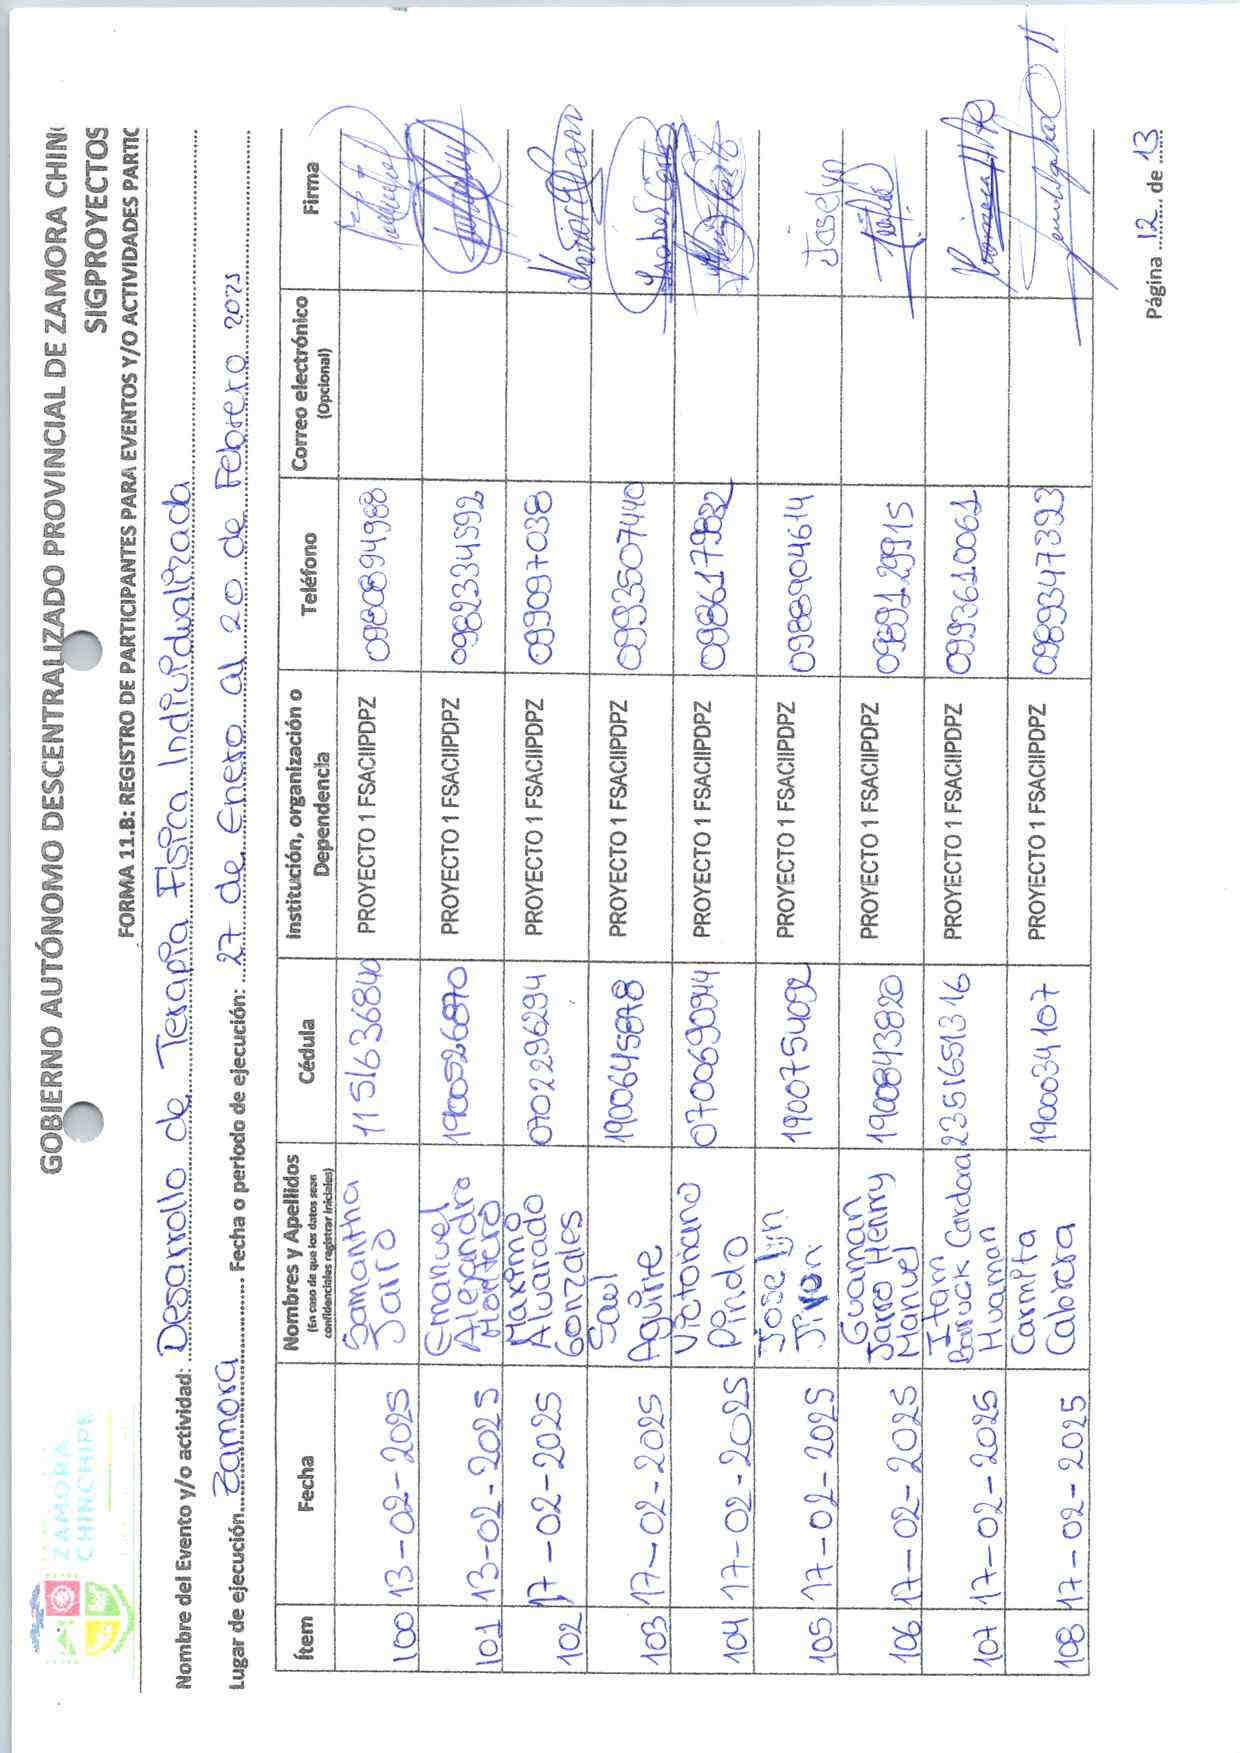 ZAMORA
CHINCHIPE
GOBIERNO AUTÓNOMO DESCENTRALIZADO PROVINCIAL DE ZAMORA CHIN
SIGPROYECTOS
FORMA 11.B: REGISTRO DE PARTICIPANTES PARA EVENTOS Y/O ACTIVIDADES PARTIC
Nombre del Evento y/o actividad: Desarrollo de Terapia Fisica Individualizada
Lugar de ejecución Zamora Fecha o periodo de ejecución: 27 de Enero al 20 de Febrero 2025
Ítem Fecha Nombres y Apellidos (En caso de que los datos sean confidenciales registrar iniciales) Cédula Institución, organización o Dependencia Teléfono Correo electrónico (Opcional) Firma
100 13-02-2025 Samantha Jairo 1151636840 PROYECTO 1 FSACIIPDPZ 0980894988
101 13-02-2025 Emanuel Alejandro Montero 1900526870 PROYECTO 1 FSACIIPDPZ 0982334592
102 17-02-2025 Maximo Alvarado Gonzales 0702296294 PROYECTO 1 FSACIIPDPZ 0990997038
103 17-02-2025 Sael Aguirre 1900645878 PROYECTO 1 FSACIIPDPZ 0993507440
104 17-02-2025 Victoriano Pindo 0700690944 PROYECTO 1 FSACIIPDPZ 0986179882
105 17-02-2025 Joselyn Jiron 1900754092 PROYECTO 1 FSACIIPDPZ 0988904614 Joselyn
106 17-02-2025 Guaman Jarro Henry Manuel 1900843820 PROYECTO 1 FSACIIPDPZ 0939129915
107 17-02-2025 Itam Barruck Cardona Huaman 2351651316 PROYECTO 1 FSACIIPDPZ 0993610061
108 17-02-2025 Carmita Cabrera 1900034107 PROYECTO 1 FSACIIPDPZ 0989347393
Página 12 de 13